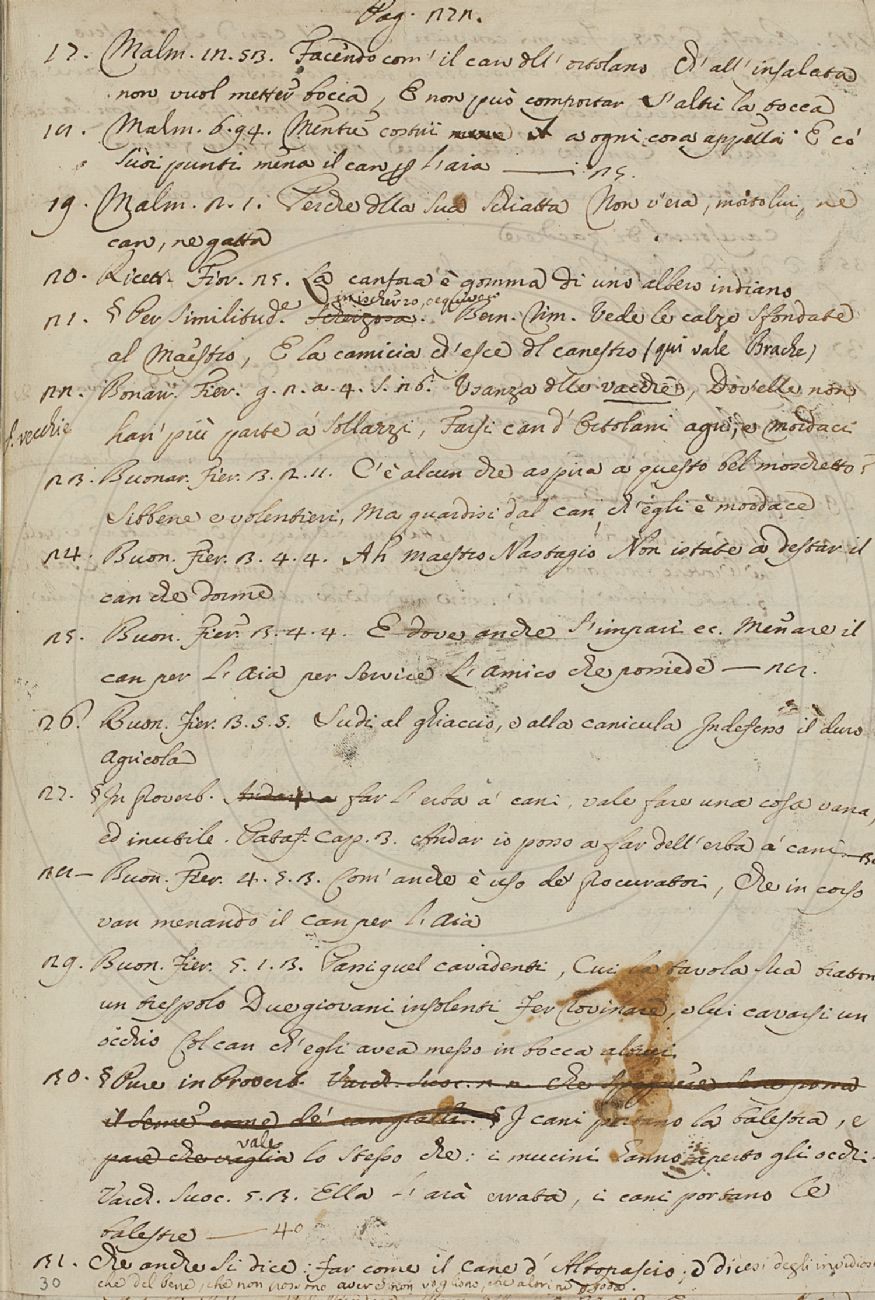 Pag. 121.
17. Malm. 12. 53. Facendo com' il can dell' ortolano Ch' all' insalata
non vuol metter bocca, E non può comportar s' altri la tocca
18. Malm. 6. 94. Mentre costui a ogni cosa appella E co'
Suoi punti mena il can l' aia 25.
19. Malm. 2. 1. Perchè della Sua Schiatta Non v'era, morto lui, nè
can, nè gatta
20. Ricett. Fior. 25. La canfora è gomma di uno albero indiano
in ischerzo,
21. § Per Similitud. Scherzosa. Bern. Rim. Vede le calze Sfondate
al Maestro, E la camicia ch' esce del canestro (qui vale Brache)
22. Bonarr. Fier. g. 2. a. 4. S. 26. Usanza delle vacchie, Dov' elle non
f. vecchie
han' più parte a' Sollazzi, Farsi can d' Ortolani agri, e mordaci
23. Buonar. Fier. 3. 2. 11. C' è alcun che aspira a questo bel moschetto?
Sibbene e volentieri, Ma guardisi dal can, ch' egli è mordace
24. Buon. Fier. 3. 4. 4. Ah maestro Nastagio Non istate a destar il
can che dorme
25. Buon. Fier. 3. 4. 4. E dove anche S' impari ec. Menare il
can per l' Aia per Servire L' Amico che possiede — 28.
26. Buon. Fier. 3. 5. 5. Sudi al ghiaccio, e alla canicula Indefesso il duro
Agricola
27. § In Proverb. Andar a far l' erba a' cani, vale fare una cosa vana,
ed inutile. Pataf. Cap. 3. Andar io posso a far dell' erba a' cani
28 — Buon. Fier. 4. 5. 3. Com' anche è uso de' Procuratori, Che in corso
van menando il can per l' Aia
29. Buon. Fier. 5. 1. 3. Pani quel cavadenti, Cui la tavola Sua
un trespolo Due giovani insolenti Fer rovinare, e lui cavarsi un
occhio Col can ch' egli avea messo in bocca altrui
30. § Pure in Proverb. Varch. Suoc.
§ I cani portano la balestra, e
vale
pare che vaglia lo Stesso che: i mucini hanno aperto gli occhi.
Varch. Suoc. 5. 3. Ella l' arà errata, i cani portano le
balestre — 40
31. Che anche Si dice: far come il cane d' Altopascio; e dicesi degli invidiosi
30 che del bene, che non possono avere non vogliono, che altri ne goda.